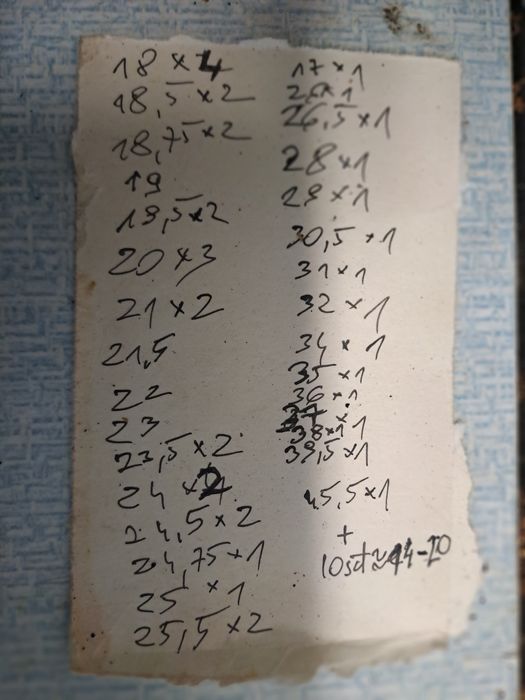 18 x 4
18,5 x 2
18,75 x 2
19
19,5 x 2
20 x 3
21 x 2
21,5
22
23
23,5 x 2
24 x 2
24,5 x 2
24,75 x 1
25 x 1
25,5 x 2
17 x 1
26 x 1
26,5 x 1
28 x 1
29 x 1
30,5 x 1
31 x 1
32 x 1
34 x 1
35 x 1
36 x 1
38 x 1
39,5 x 1
45,5 x 1
+